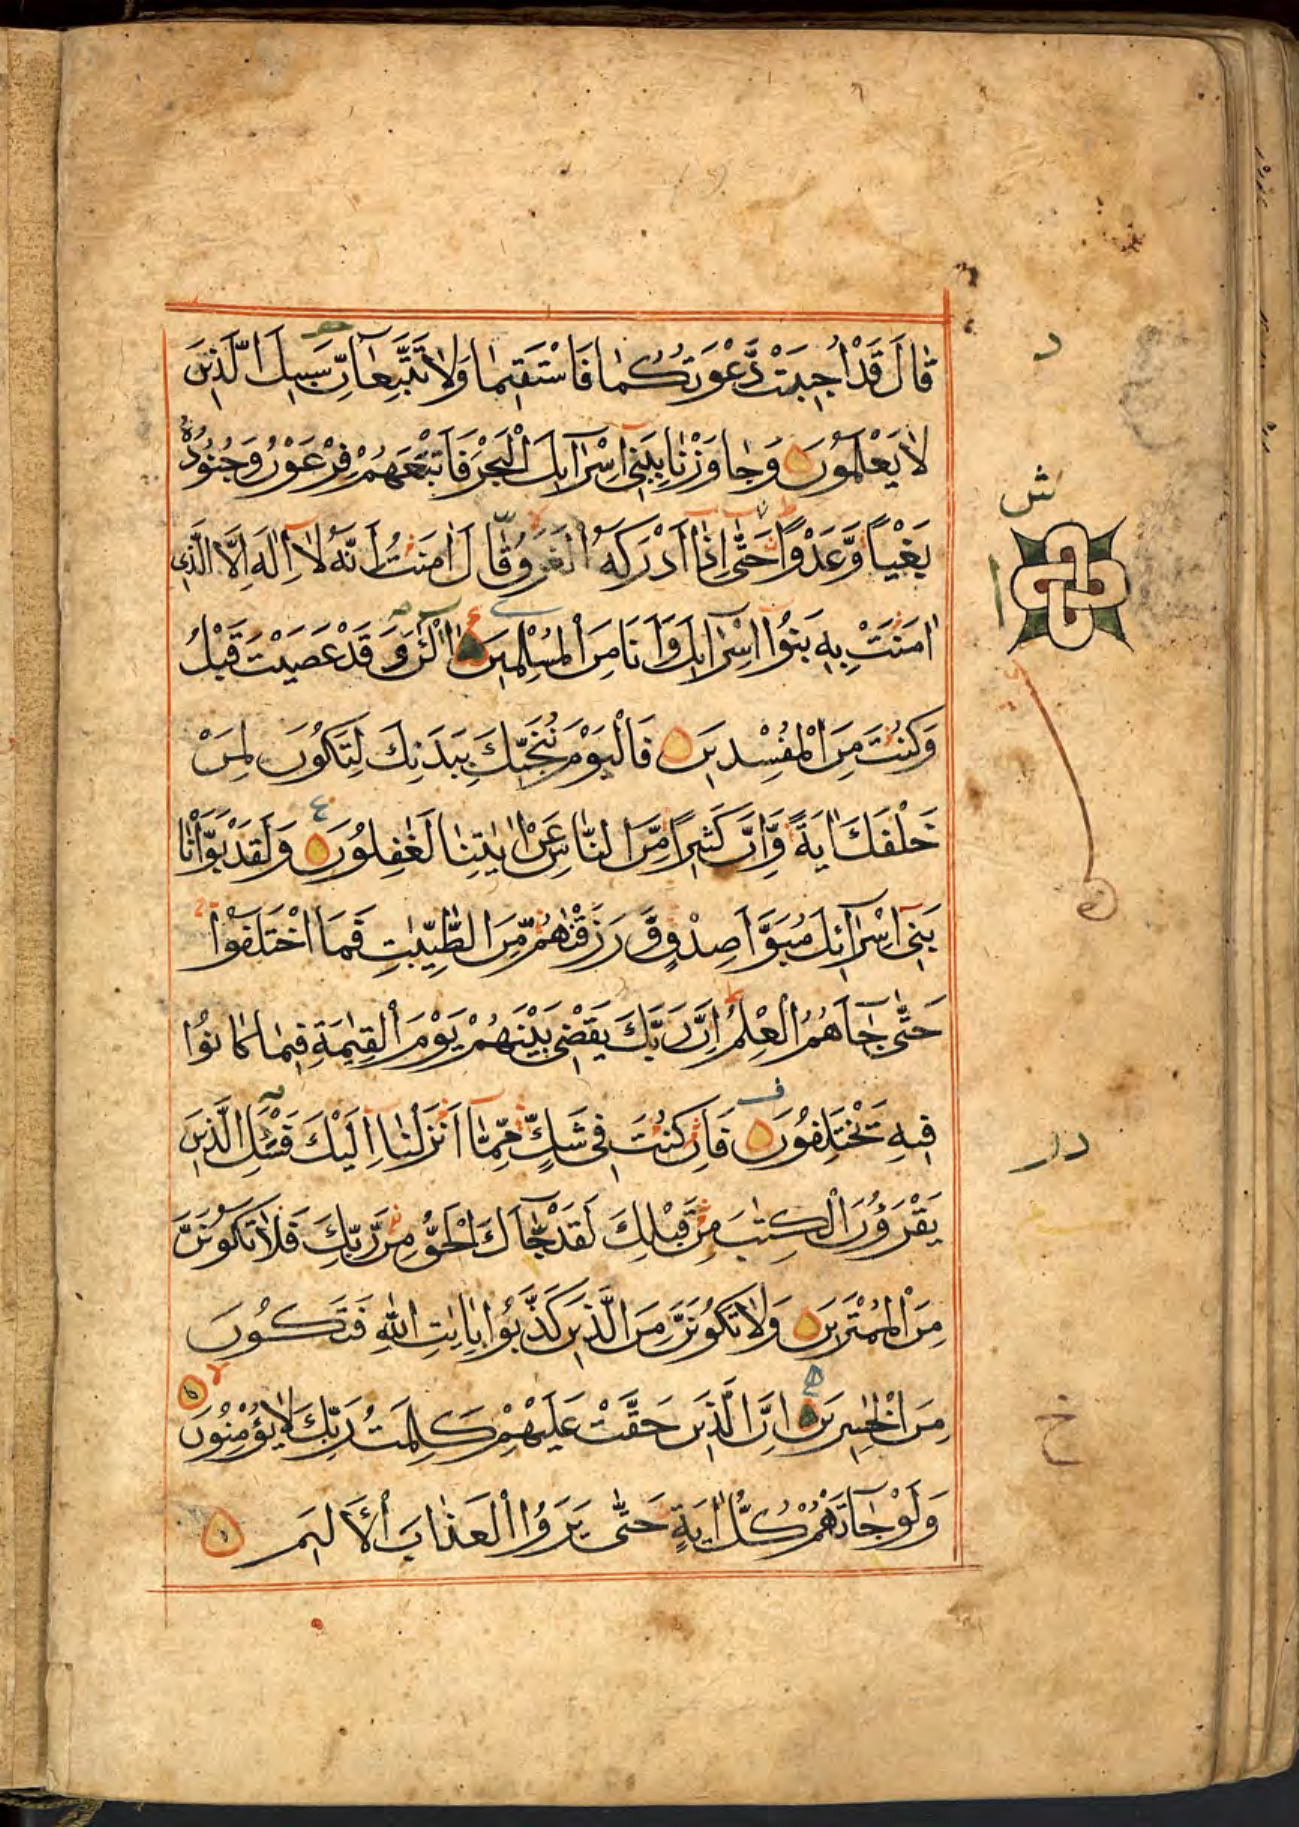 قَالَ قَدْ اُجِيبَتْ دَّعْوَتُكُمَا فَاسْتَقِيمَا وَلَا تَتَّبِعَآنِّ سَبِيلَ الَّذِينَ
لَا يَعْلَمُونَ ۝ وَجَاوَزْنَا بِبَنِىٓ اِسْرَآئِلَ الْبَحْرَ فَاَتْبَعَهُمْ فِرْعَوْنُ وَجُنُودُهُ
بَغْيًا وَّعَدْوًا حَتَّىٓ اِذَآ اَدْرَكَهُ الْغَرَقُ قَالَ اٰمَنْتُ اَنَّهُ لَآ اِلٰهَ اِلَّا الَّذِىٓ
اٰمَنَتْ بِهِ بَنُوٓا اِسْرَآئِلَ وَاَنَا مِنَ الْمُسْلِمِينَ ۝ آلْـٰٔنَ وَقَدْ عَصَيْتَ قَبْلُ
وَكُنْتَ مِنَ الْمُفْسِدِينَ ۝ فَالْيَوْمَ نُنَجِّيكَ بِبَدَنِكَ لِتَكُونَ لِمَنْ
خَلْفَكَ اٰيَةً وَّاِنَّ كَثِيرًا مِّنَ النَّاسِ عَنْ اٰيٰتِنَا لَغٰفِلُونَ ۝ وَلَقَدْ بَوَّاْنَا
بَنِىٓ اِسْرَآئِلَ مُبَوَّاَ صِدْقٍ وَّرَزَقْنٰهُمْ مِّنَ الطَّيِّبٰتِ فَمَا اخْتَلَفُوْا
حَتّٰى جَآءَهُمُ الْعِلْمُ اِنَّ رَبَّكَ يَقْضِى بَيْنَهُمْ يَوْمَ الْقِيٰمَةِ فِيمَا كَانُوا
فِيهِ يَخْتَلِفُونَ ۝ فَاِنْ كُنْتَ فِى شَكٍّ مِّمَّآ اَنْزَلْنَآ اِلَيْكَ فَسْـَٔلِ الَّذِينَ
يَقْرَؤُنَ الْكِتٰبَ مِنْ قَبْلِكَ لَقَدْ جَآءَكَ الْحَقُّ مِنْ رَّبِّكَ فَلَا تَكُونَنَّ
مِنَ الْمُمْتَرِينَ ۝ وَلَا تَكُونَنَّ مِنَ الَّذِينَ كَذَّبُوا بِاٰيٰتِ اللّٰهِ فَتَكُونَ
مِنَ الْخٰسِرِينَ ۝ اِنَّ الَّذِينَ حَقَّتْ عَلَيْهِمْ كَلِمَتُ رَبِّكَ لَا يُؤْمِنُونَ ۝
وَلَوْ جَآءَتْهُمْ كُلُّ اٰيَةٍ حَتّٰى يَرَوُا الْعَذَابَ الْاَلِيمَ ۝
د
ش
در
خ